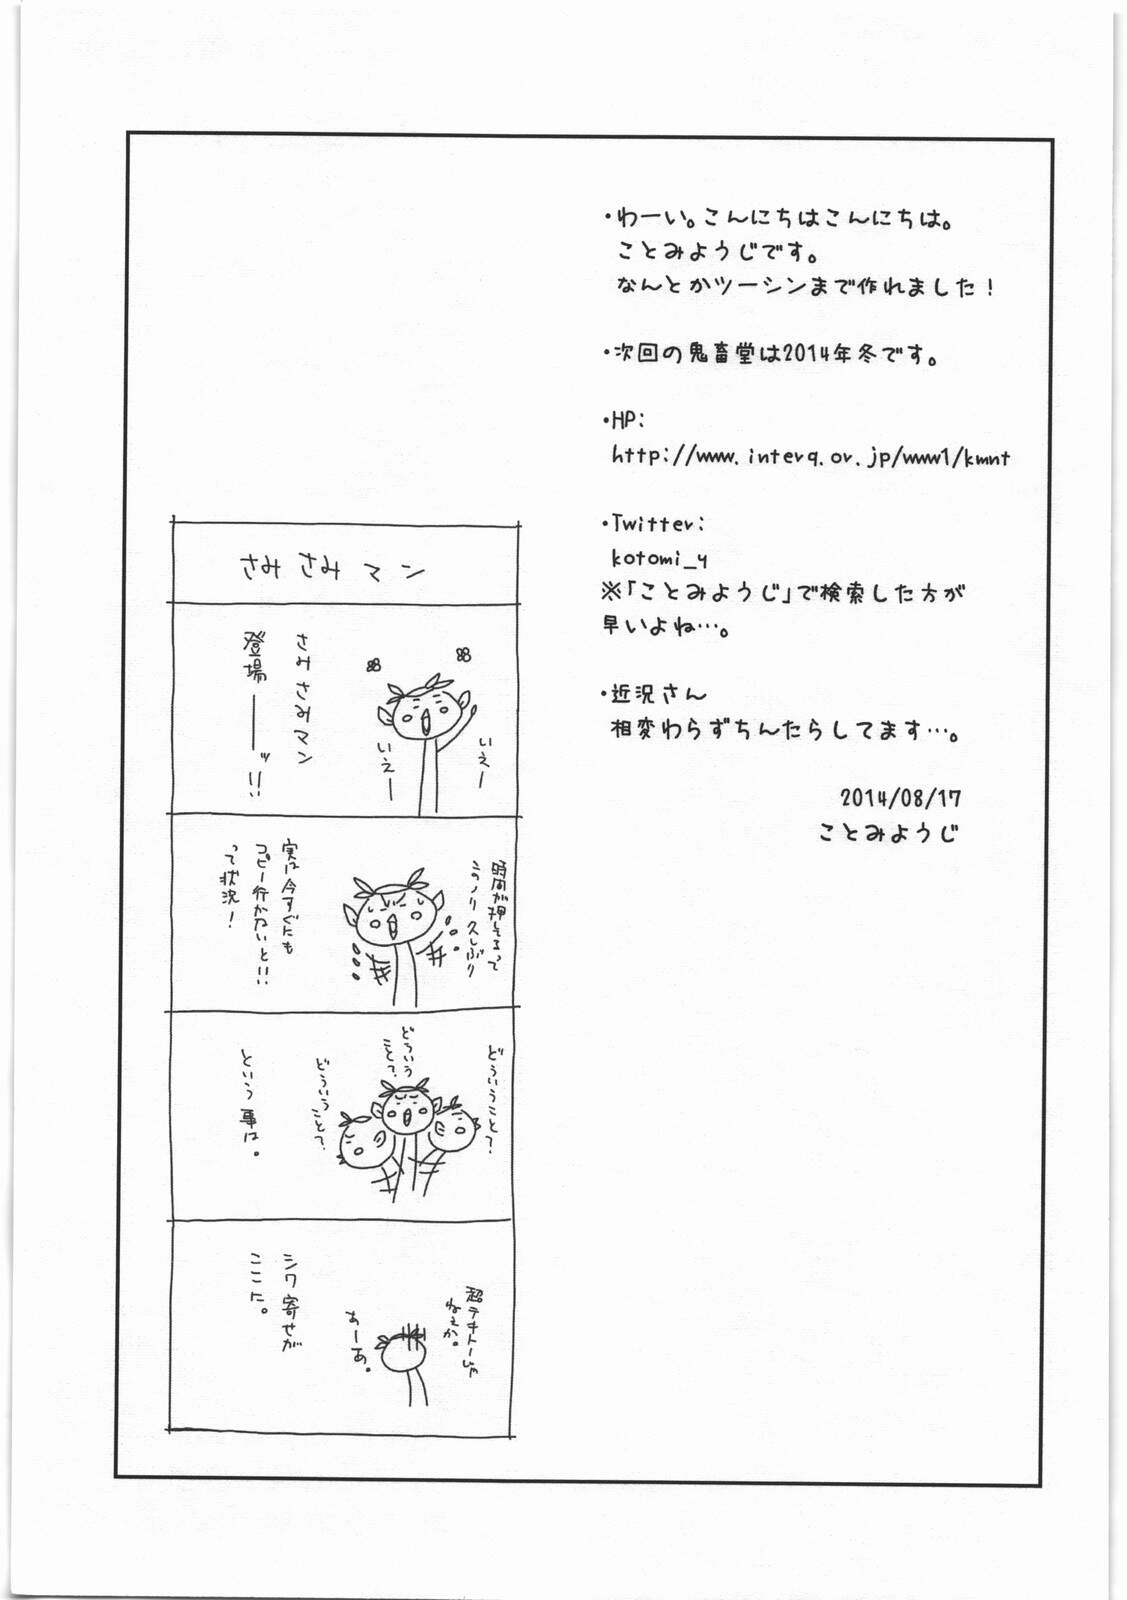 ・わーい。こんにちはこんにちは。
ことみようじです。
なんとかツーシンまで作れました！
・次回の鬼畜堂は2014年冬です。
・HP:
http://www.interq.or.jp/www1/kmnt
・Twitter:
kotomi_y
※「ことみようじ」で検索した方が
早いよね…。
・近況さん
相変わらずちんたらしてます…。
2014/08/17
ことみようじ
さみさみマン
いえー
いえー
さみさみマン
登場──ッ!!
時間が押してるって
このノリ久しぶり
実は今すぐにも
コピー行かないと!!
って状況！
どういうことて?
どういう
ことて?
どういうことて?
という事は。
超テキトーじゃ
ねぇか。
あーあ。
シワ寄せが
ここに。